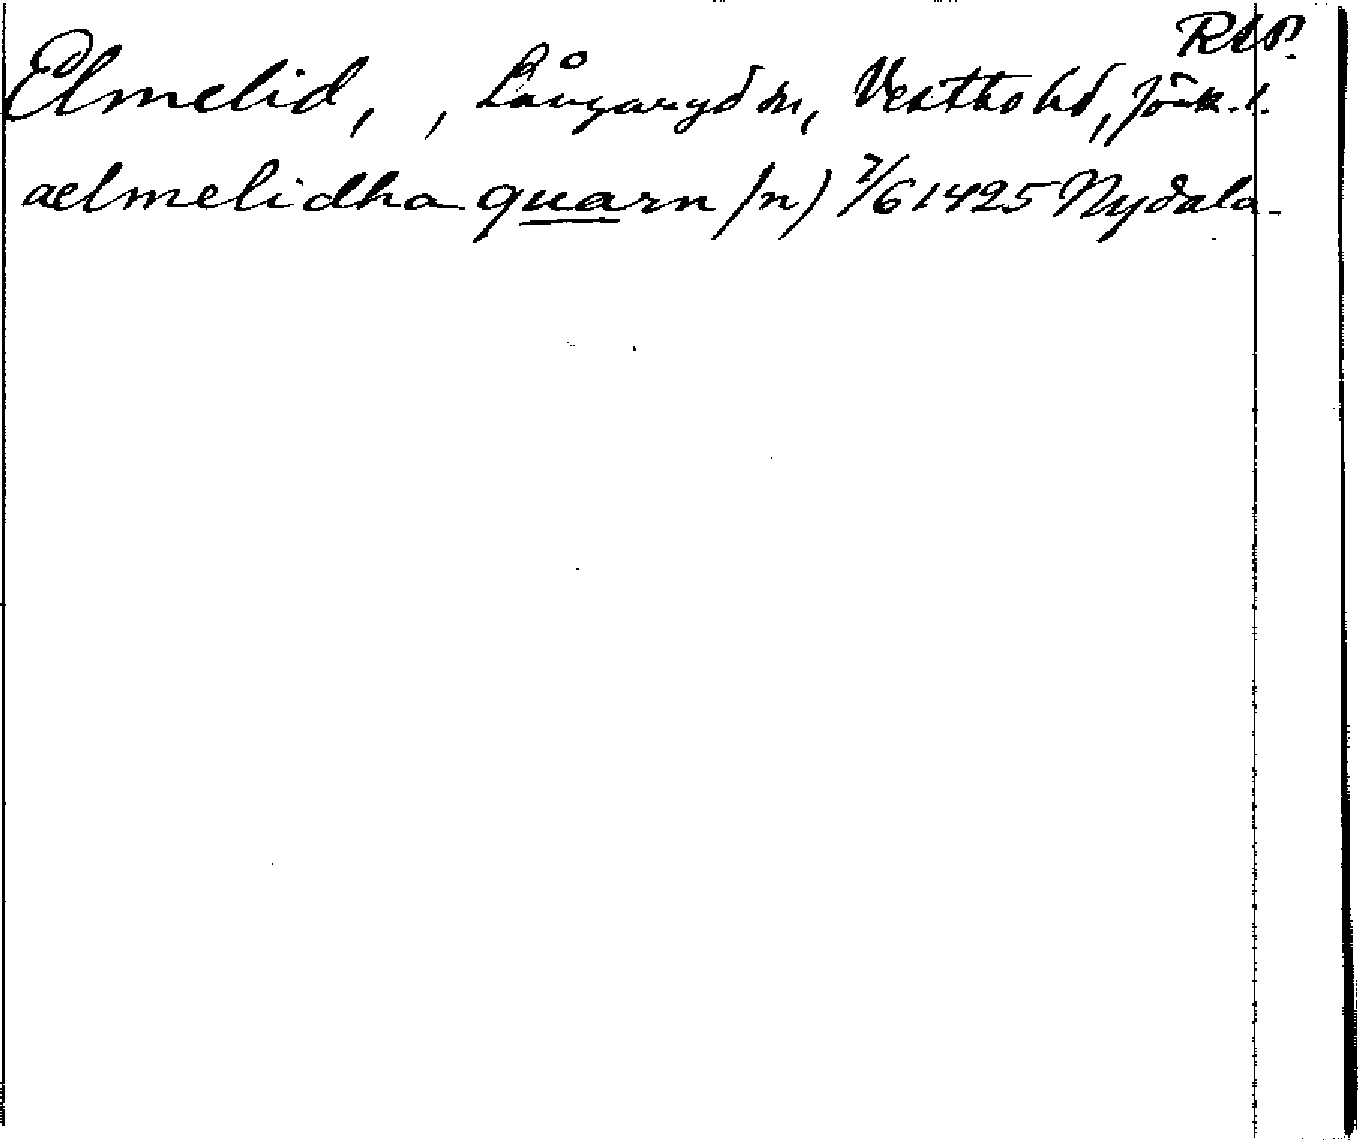 RAP.
Elmelid, , Långaryd sn, Västbo hd, Jönk. l.
aelmelidha quarn (n) 7/6 1425 Nydala.